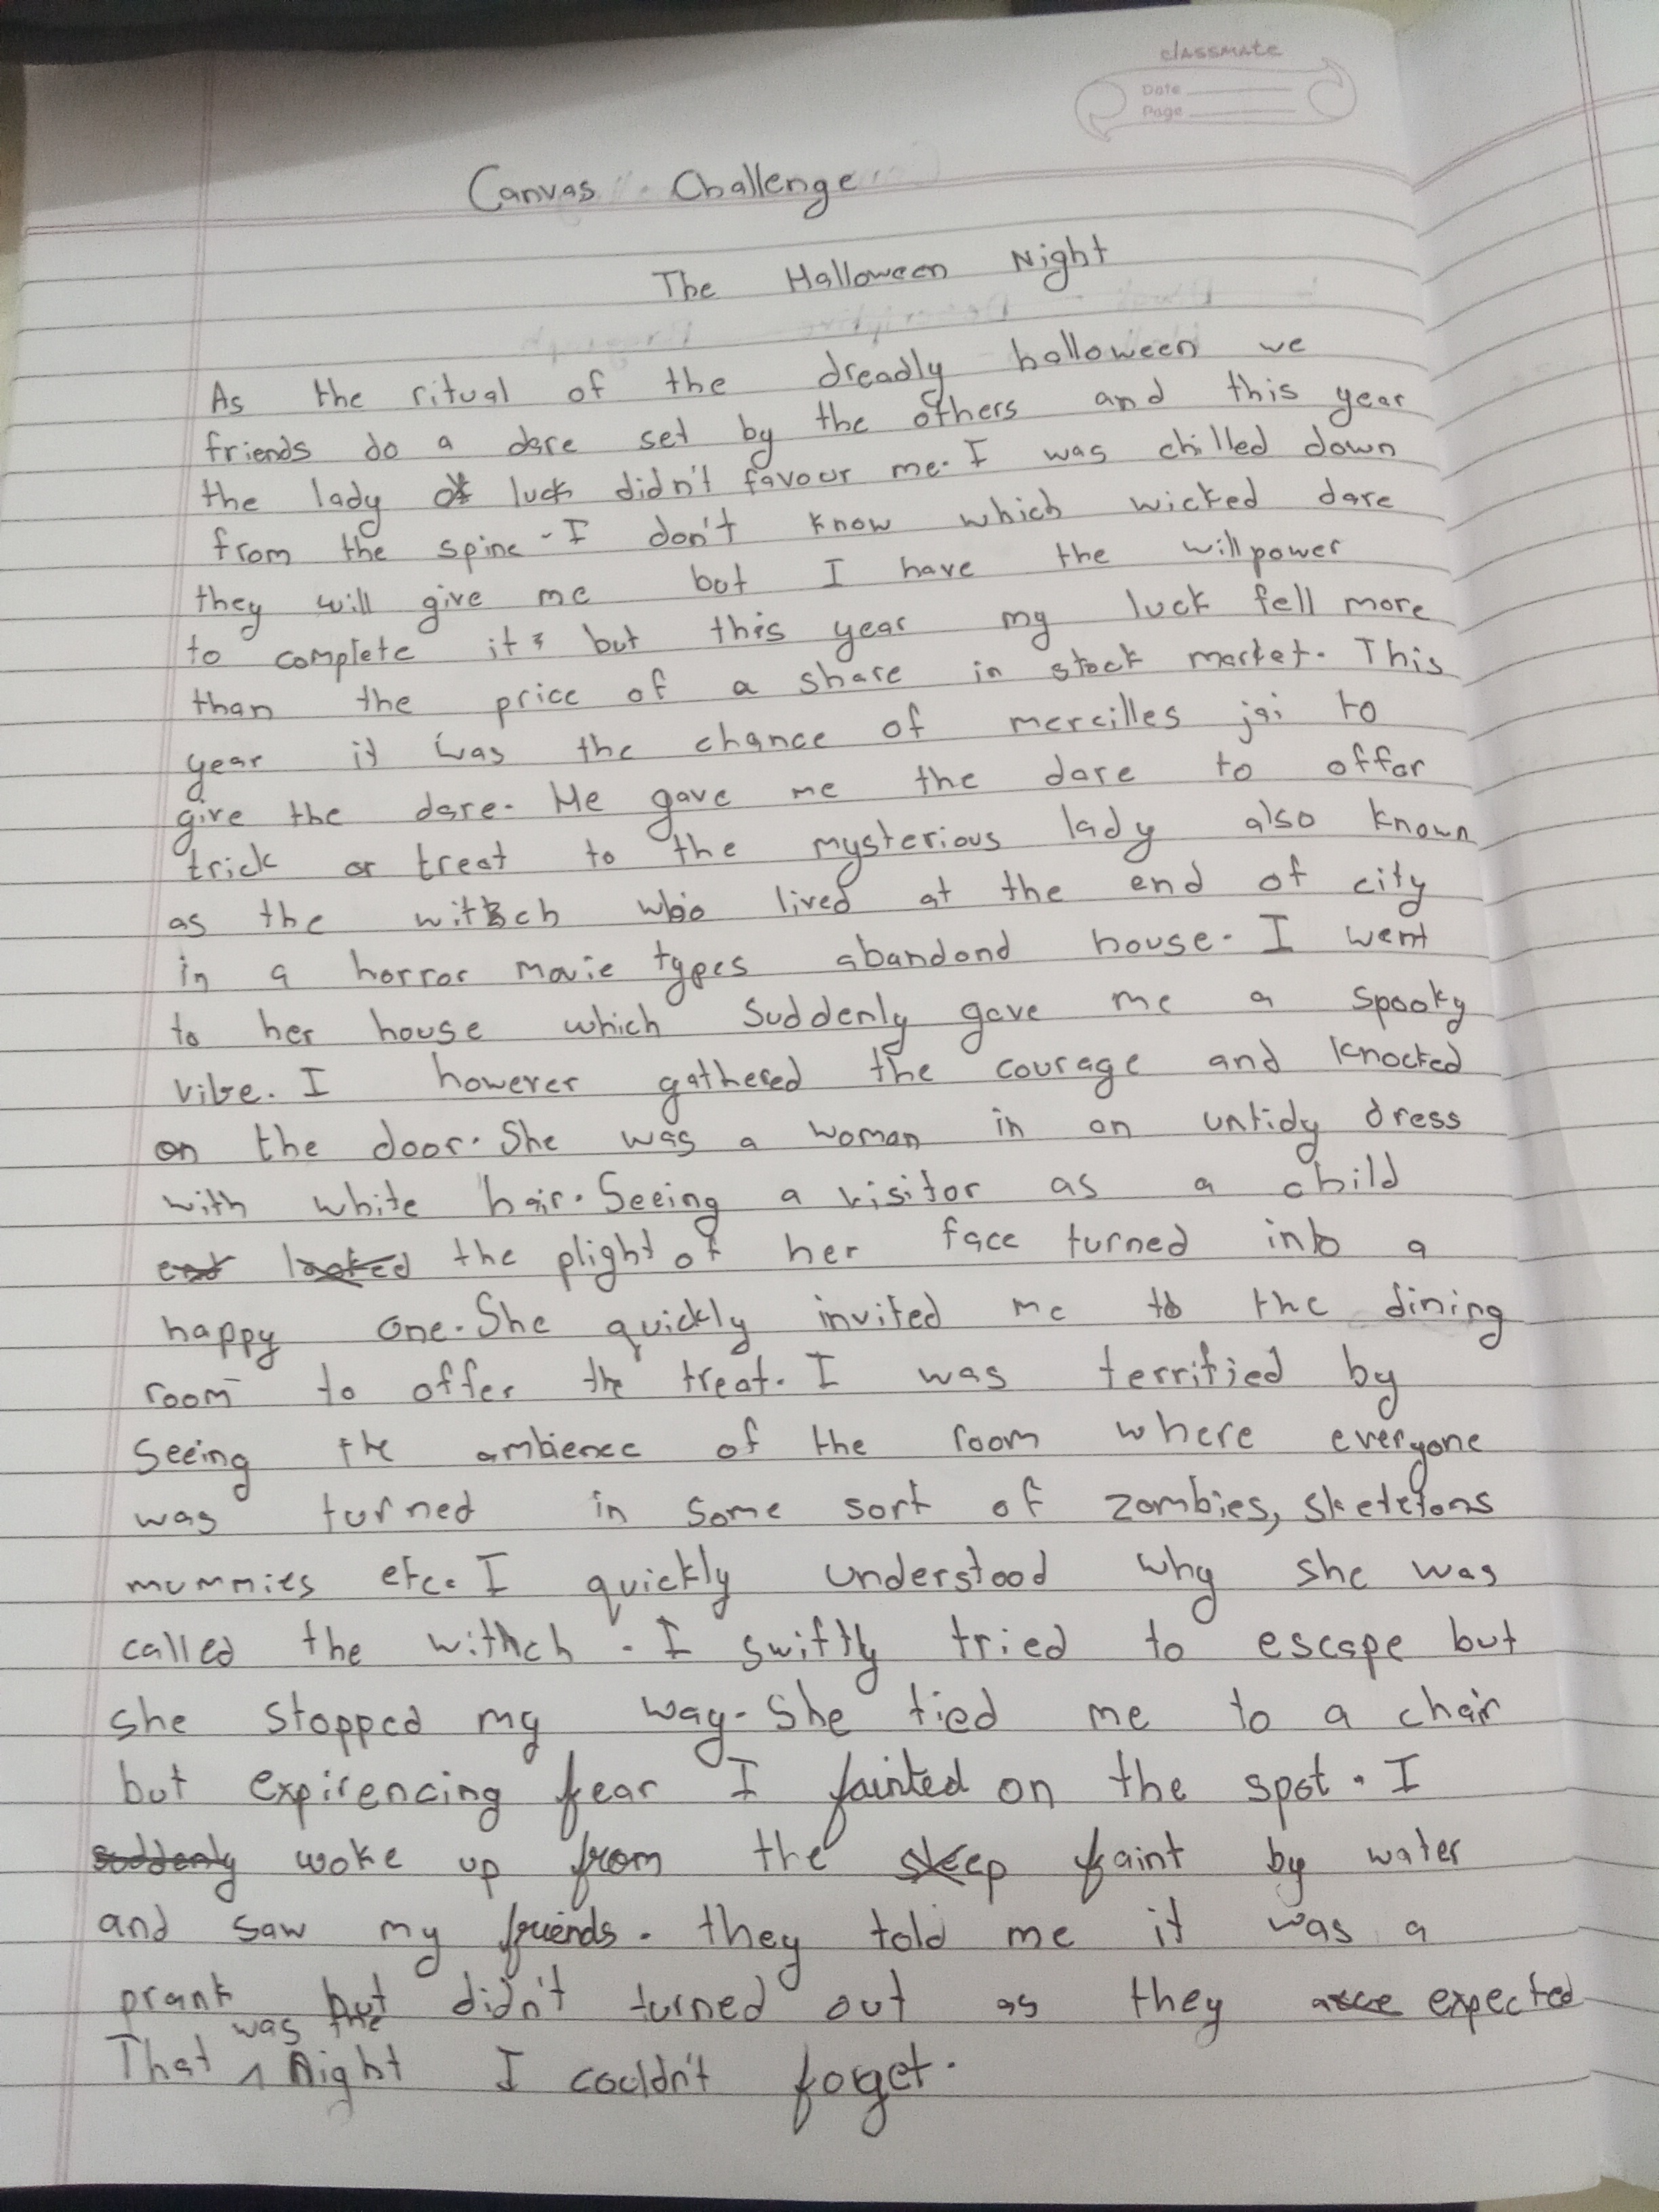 classmate
Date
Page
Canvas Challenge
The Halloween Night
As the ritual of the dreadly halloween we
friends do a dare set by the others and this year
the lady of luck didn't favour me. I was chilled down
from the spine. I don't know which wicked dare
they will give me but I have the willpower
to complete it, but this year my luck fell more
than the price of a share in stock market. This
year it was the chance of mercilles jai to
give the dare. He gave me the dare to offer
trick or treat to the mysterious lady also known
as the witch who lived at the end of city
in a horror movie types abandond house. I went
to her house which suddenly gave me a spooky
vibe. I however gathered the courage and knocked
on the door. She was a woman in an untidy dress
with white hair. Seeing a visitor as a child
the plight of her face turned into a
happy one. She quickly invited me to the dining
room to offer the treat. I was terrified by
seeing the ambience of the room where everyone
was turned in some sort of zombies, skeletons
mummies etc. I quickly understood why she was
called the withch. I swiftly tried to escape but
she stopped my way. She tied me to a chair
but expirencing fear I fainted on the spot. I
suddenly woke up from the sleep faint by water
and saw my friends. they told me it was a
prank but didn't turned out as they expected
That was the Night I couldn't forget.